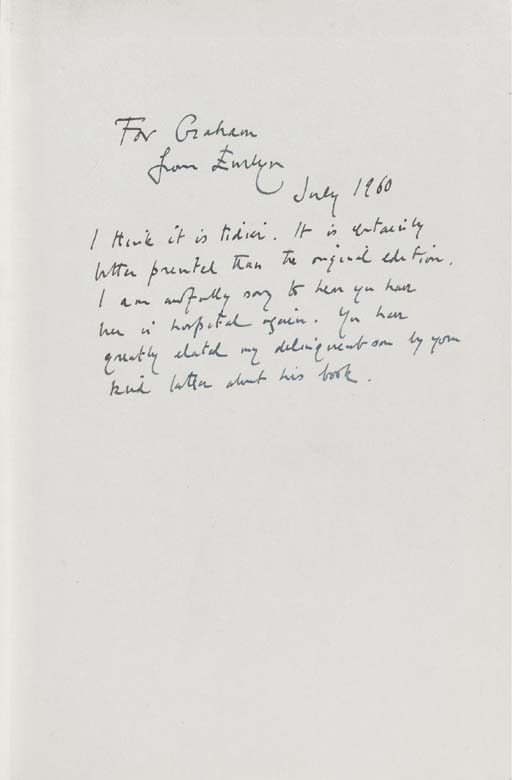 For Graham
from Evelyn
July 1960
I think it is tidier. It is certainly
better printed than the original edition.
I am awfully sorry to hear you have
been in hospital again. You have
greatly elated my delinquent son by your
kind letter about his book.